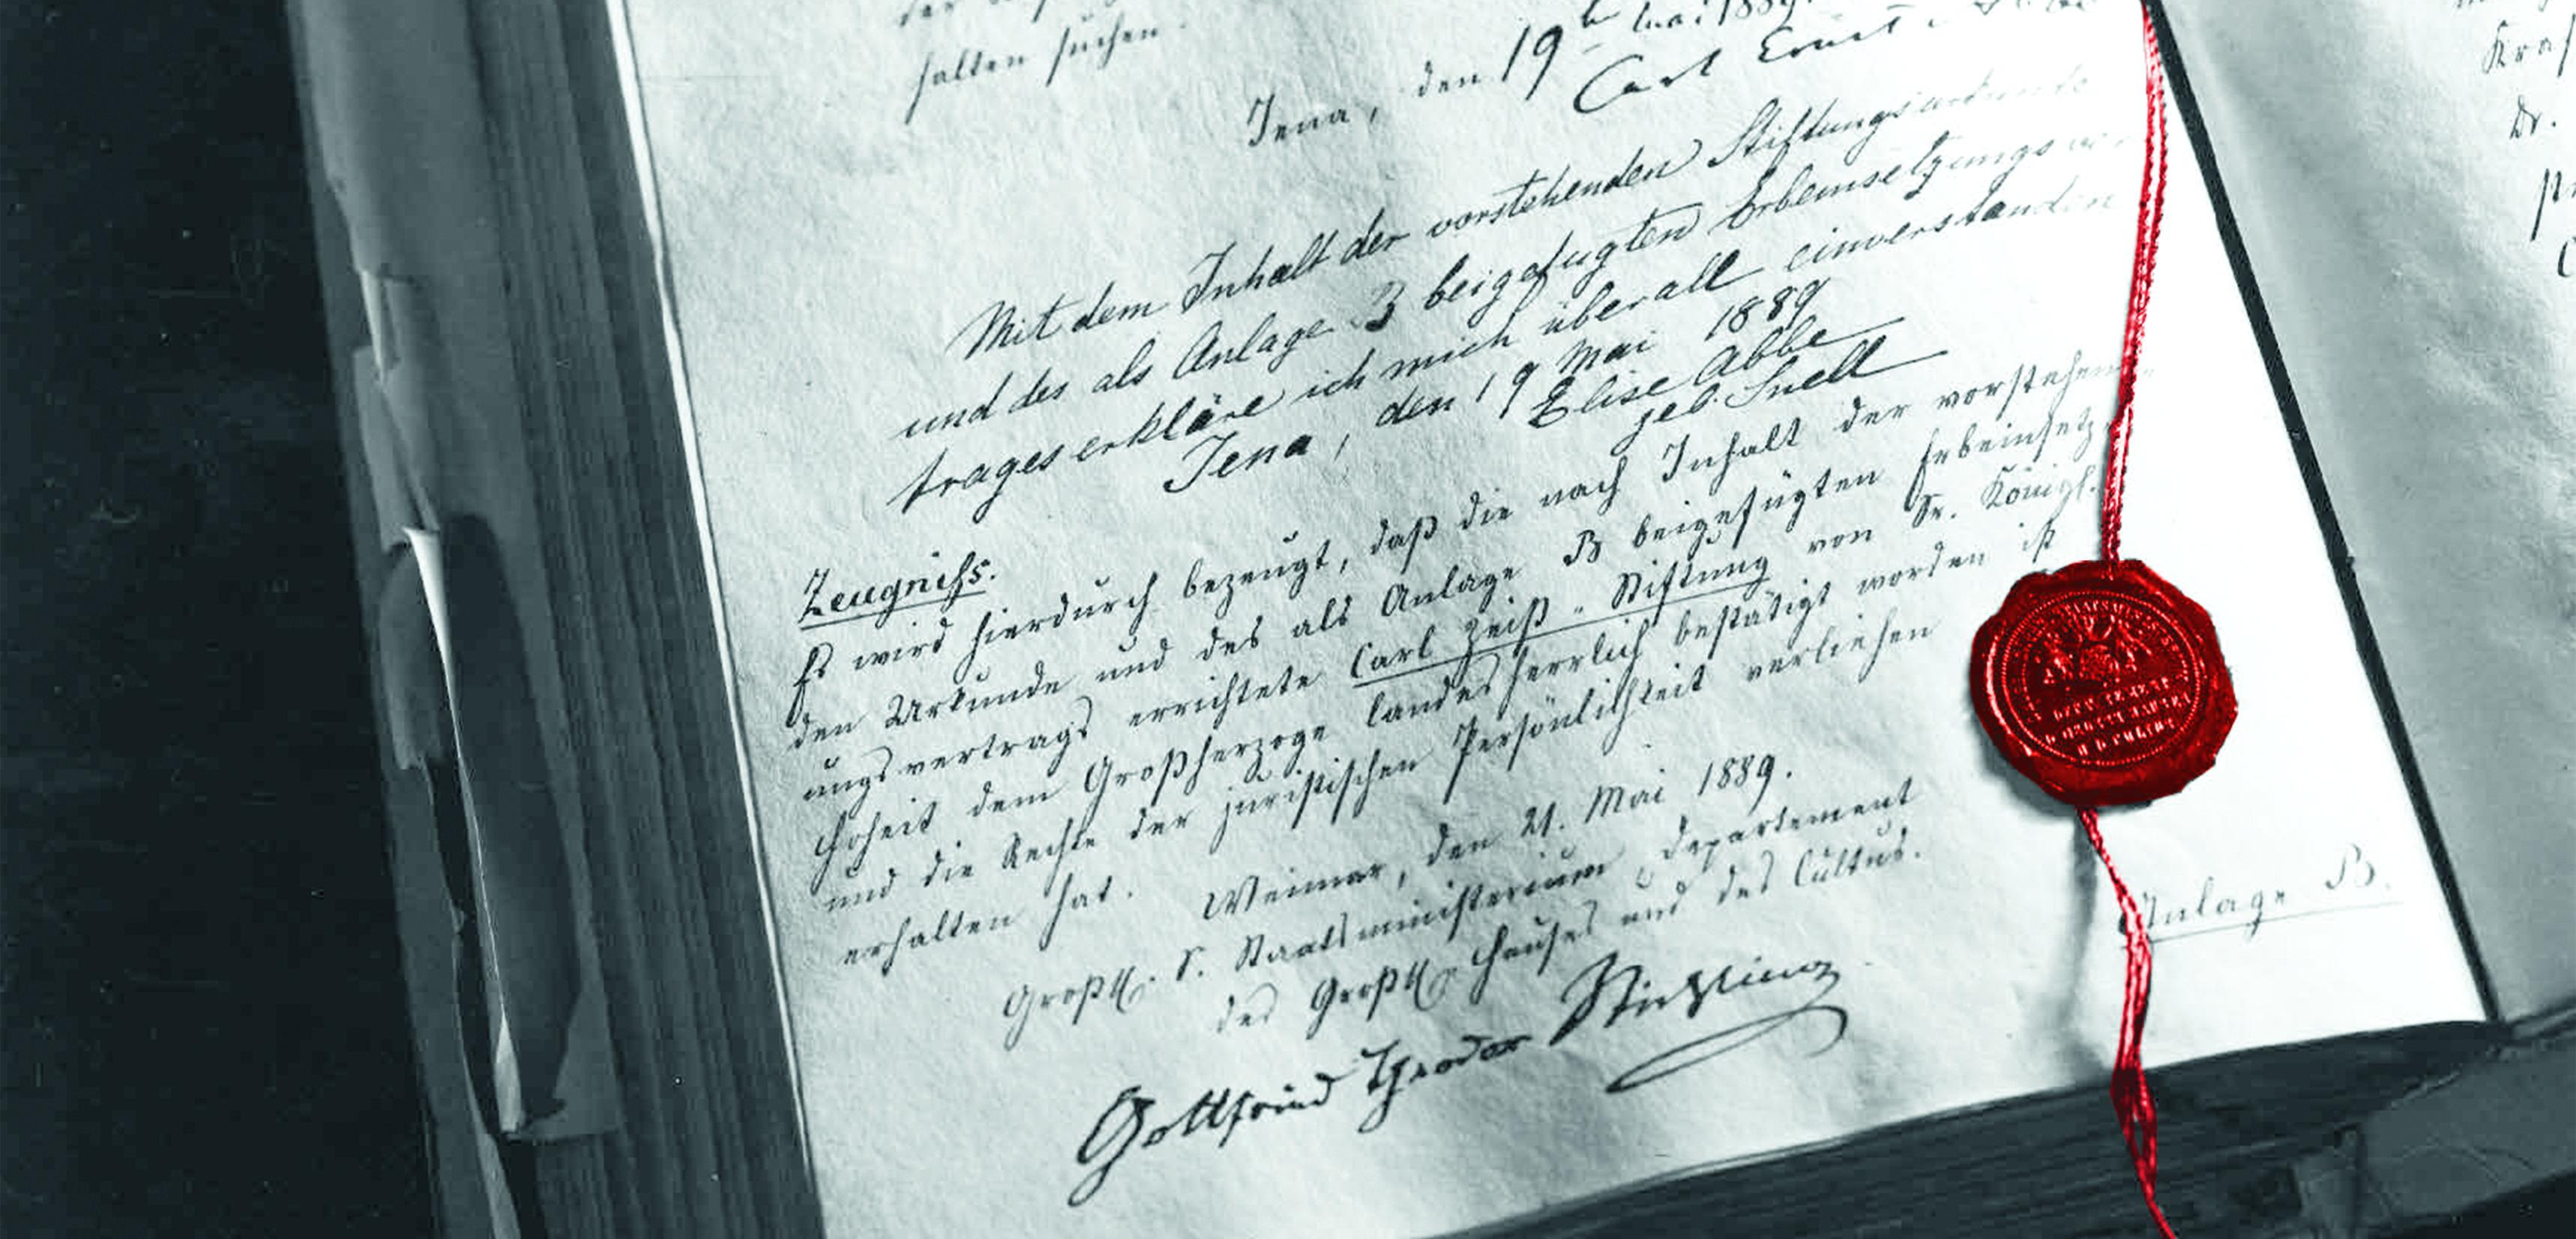 halten suchen.
Jena, den 19ten Mai 1889.
Carl Ernst
Mit dem Inhalt der vorstehenden Stiftungsurkunde
und des als Anlage B beigefugten Erbeinsetzungsver-
trages erkläre ich mich überall einverstanden
Jena, den 19 Mai 1889
Elise Abbe
geb. Snell
Zeugniß.
Es wird hierdurch bezeugt, daß die nach Inhalt der vorstehen-
den Urkunde und des als Anlage B beigefügten Erbeinsetz-
ungsvertrags errichtete Carl Zeiß-Stiftung von Sr. Königl.
Hoheit dem Großherzoge landesherrlich bestätigt worden ist
und die Rechte der juristischen Persönlichkeit verliehen
erhalten hat. Weimar, den 21. Mai 1889.
Großh. S. Staatsministerium, Departement
des Großh. Hauses und des Cultus.
Gottfried Theodor Stichling
Anlage B.
Dr.